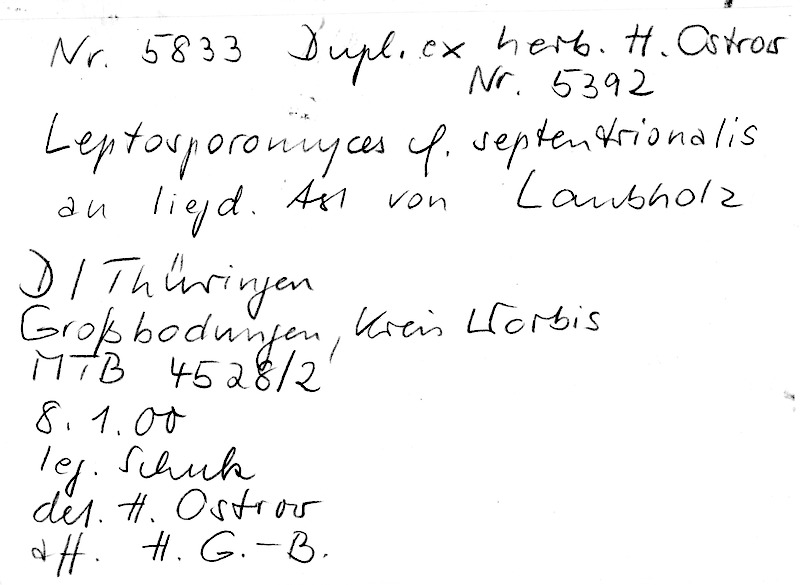 Nr. 5833 Dupl. ex herb. H. Ostrow
Nr. 5392
Leptosporomyces cf. septentrionalis
an liegd. Ast von Laubholz
D / Thüringen
Großbodungen, Kreis Worbis
MTB 4528/2
8. 1. 00
leg. Schuk
det. H. Ostrow
H. G.-B.